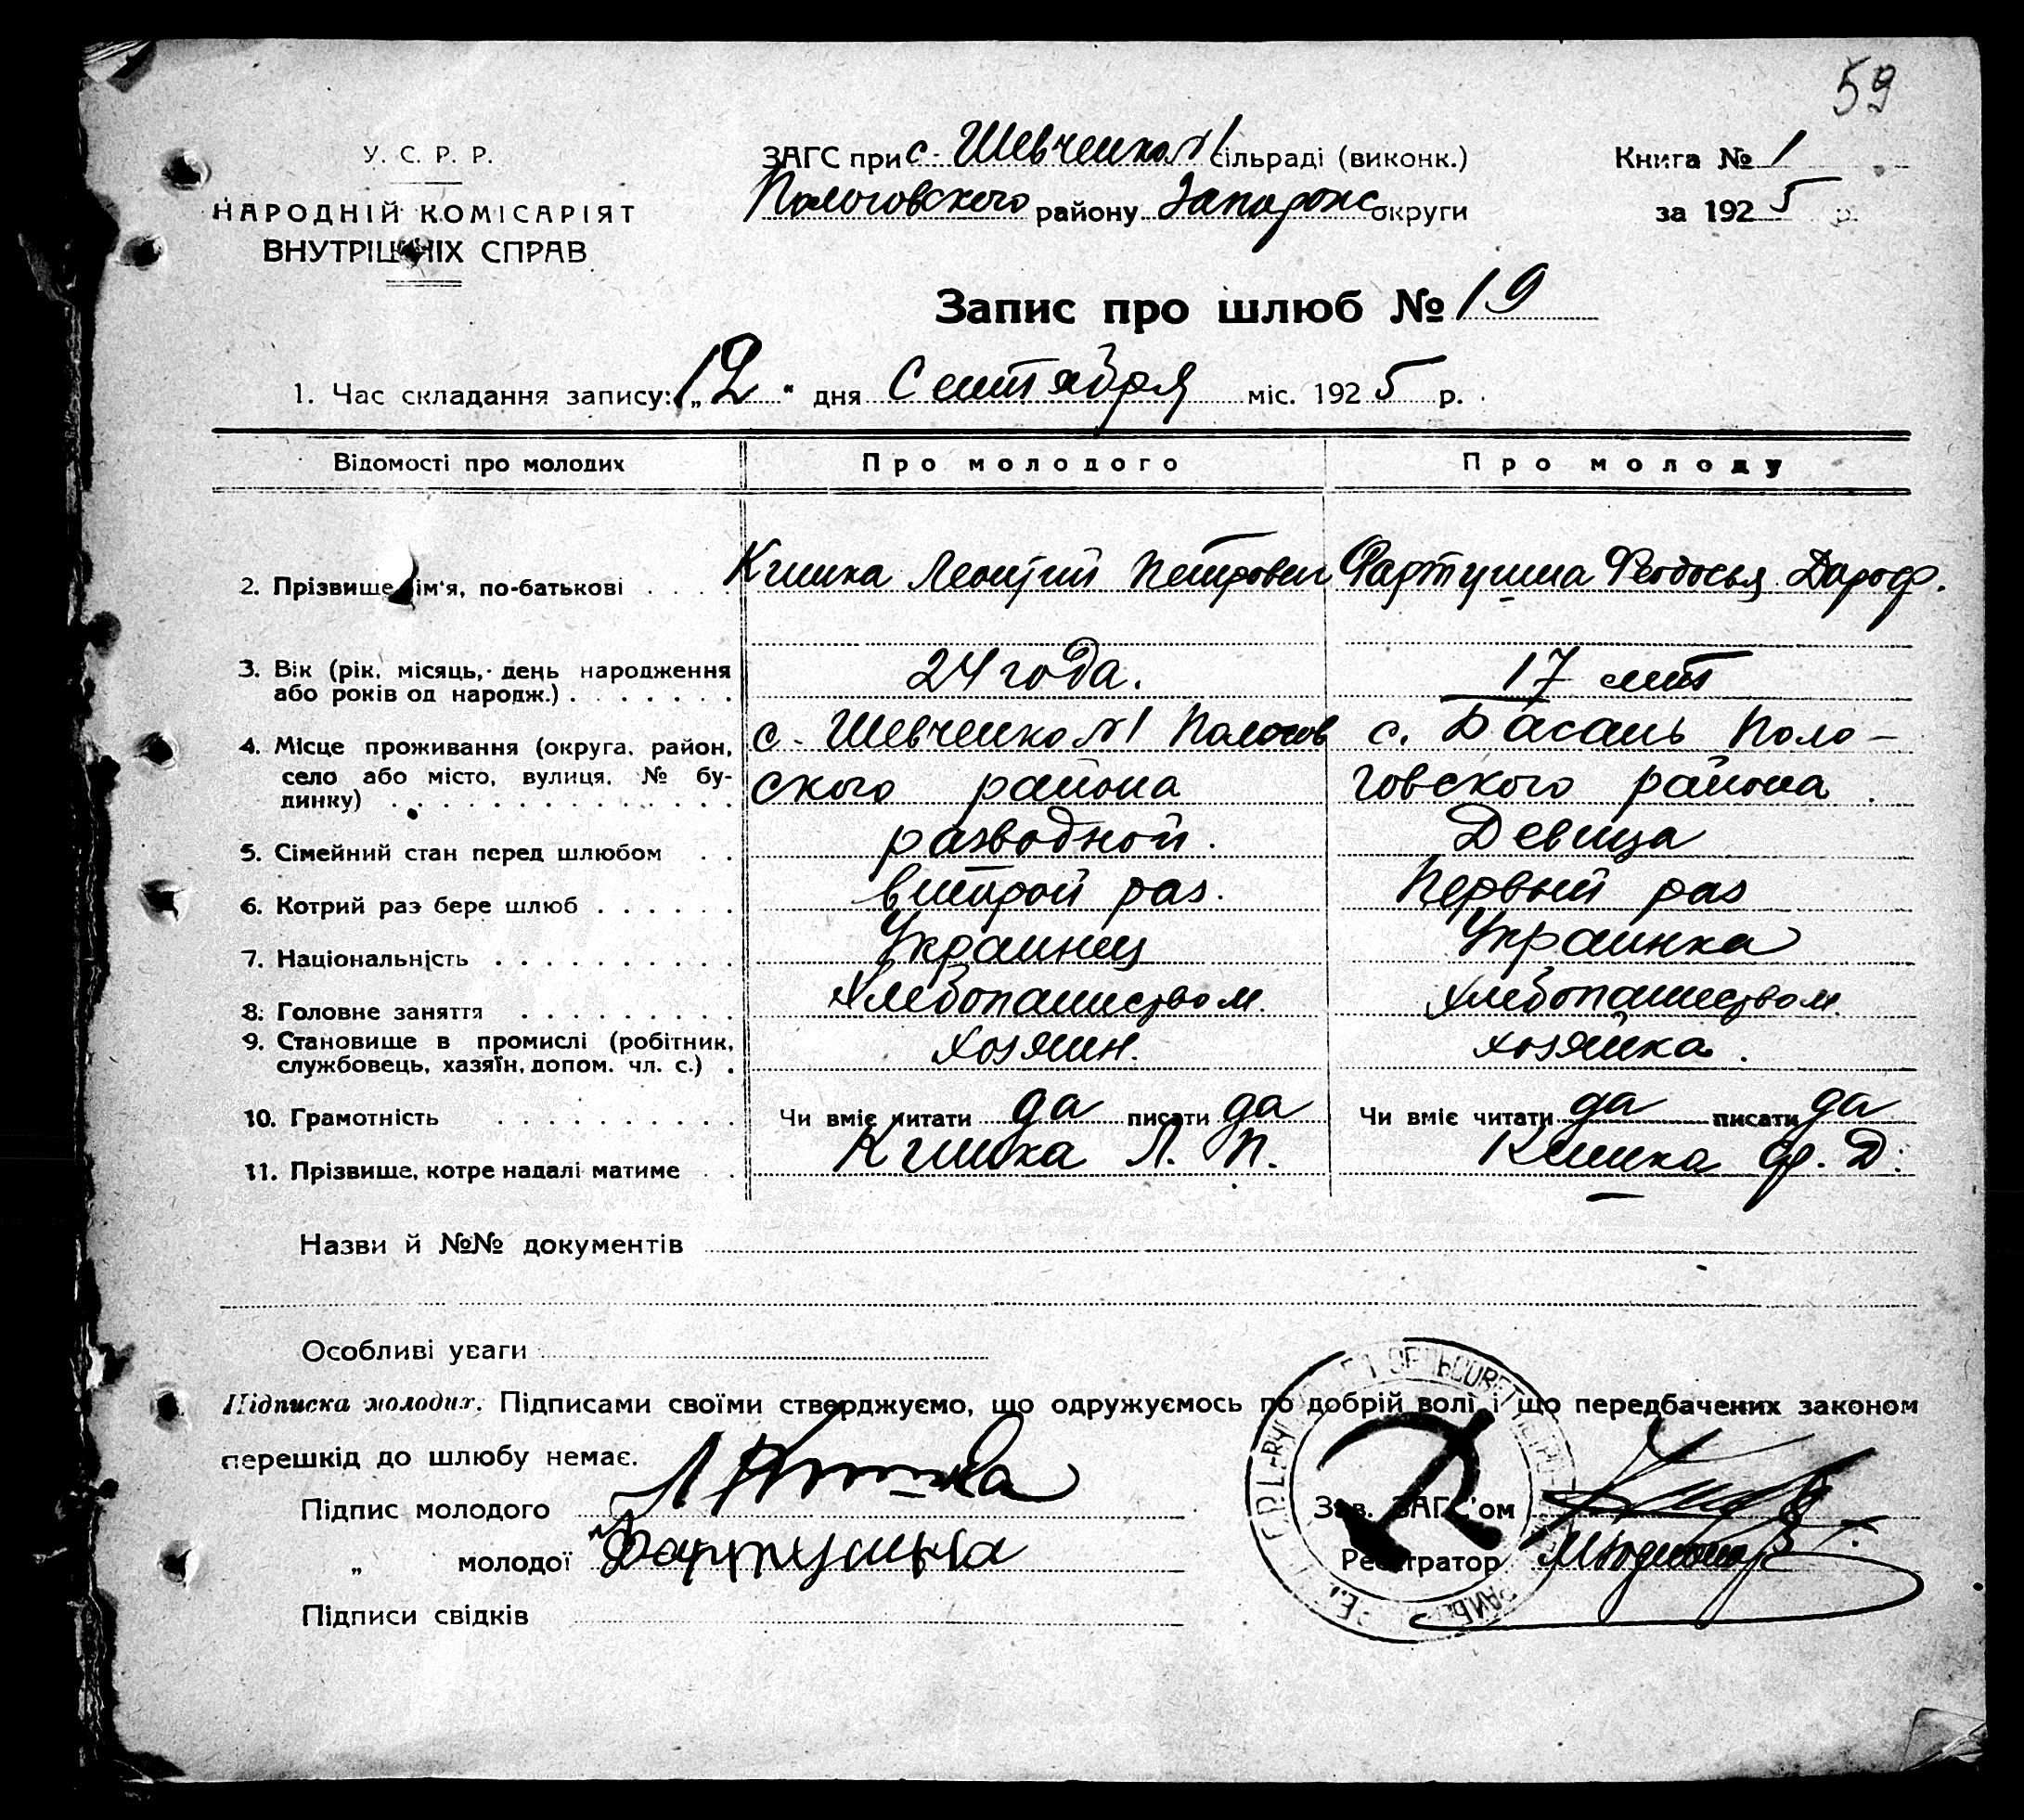 59
У. С. Р. Р.
НАРОДНІЙ КОМІСАРІЯТ
ВНУТРІШНІХ СПРАВ
ЗАГС при с. Шевченко №1 сільраді (виконк.)
Пологовского району Запорожс округи
Книга № 1
за 1925 р.
Запис про шлюб № 19
1. Час складання запису: „12“ дня Сентября міс. 1925 р.
Відомості про молодих Про молодого Про молоду
2. Прізвище, ім'я, по-батькові . . . . Кишка Леонтий Петрович Фартушна Феодосья Дароф.
3. Вік (рік, місяць, день народження
або років од народж.) . . . . . . . 24 года. 17 лет
4. Місце проживання (округа, район, с. Шевченко №1 Пологов с. Басань Поло-
село або місто, вулиця, № бу-
динку) . . . . . . . . . . . . . . ского района говского района
5. Сімейний стан перед шлюбом . . разводной. Девица
6. Котрий раз бере шлюб . . . . . . второй раз. Первый раз
7. Національність . . . . . . . . . . Украинец Украинка
8. Головне заняття . . . . . . . . . Хлебопашеством. Хлебопашеством.
9. Становище в промислі (робітник,
службовець, хазяїн, допом. чл. с.) . хозяин. хозяйка.
10. Грамотність . . . . . . . . . . Чи вміє читати да писати да Чи вміє читати да писати да
11. Прізвище, котре надалі матиме . . Кишка Л. П. Кишка Ф. Д.
Назви й №№ документів
Особливі уваги
Підписка молодих. Підписами своїми стверджуємо, що одружуємось по добрій волі і що передбачених законом
перешкід до шлюбу немає.
Підпис молодого Л Кишка
„ молодої Фартушна
Підписи свідків
Зав. ЗАГС'ом
Реєстратор